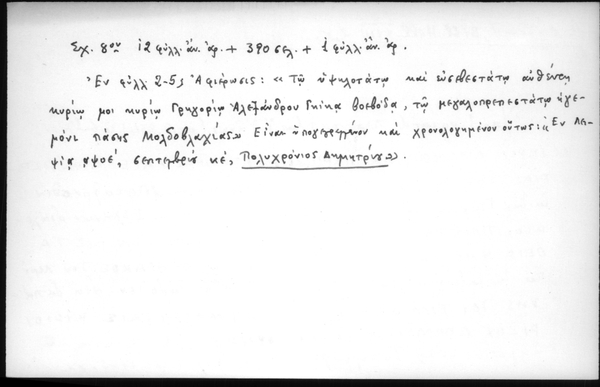 Σχ. 8ον 12 φύλλ. ἀν. ἀρ. + 390 σελ. + 1 φύλλ. ἀν. ἀρ.
Ἐν φύλλ 2-5ᵃ Ἀφιέρωσις: « Τῷ ὑψηλοτάτῳ καὶ εὐσεβεστάτῳ αὐθέντῃ
κυρίῳ μοι κυρίῳ Γρηγορίῳ Ἀλεξάνδρου Γκίκα βοεβόδᾳ, τῷ μεγαλοπρεπεστάτῳ ἡγε-
μόνι πάσης Μολδοβλαχίας» Εἶναι ὑπογεγραμμένον καὶ χρονολογημένον οὕτως: «Ἐν Λει-
ψίᾳ αψοέ, σεπτεμβρίῳ κέ, Πολυχρόνιος Δημητρίου».